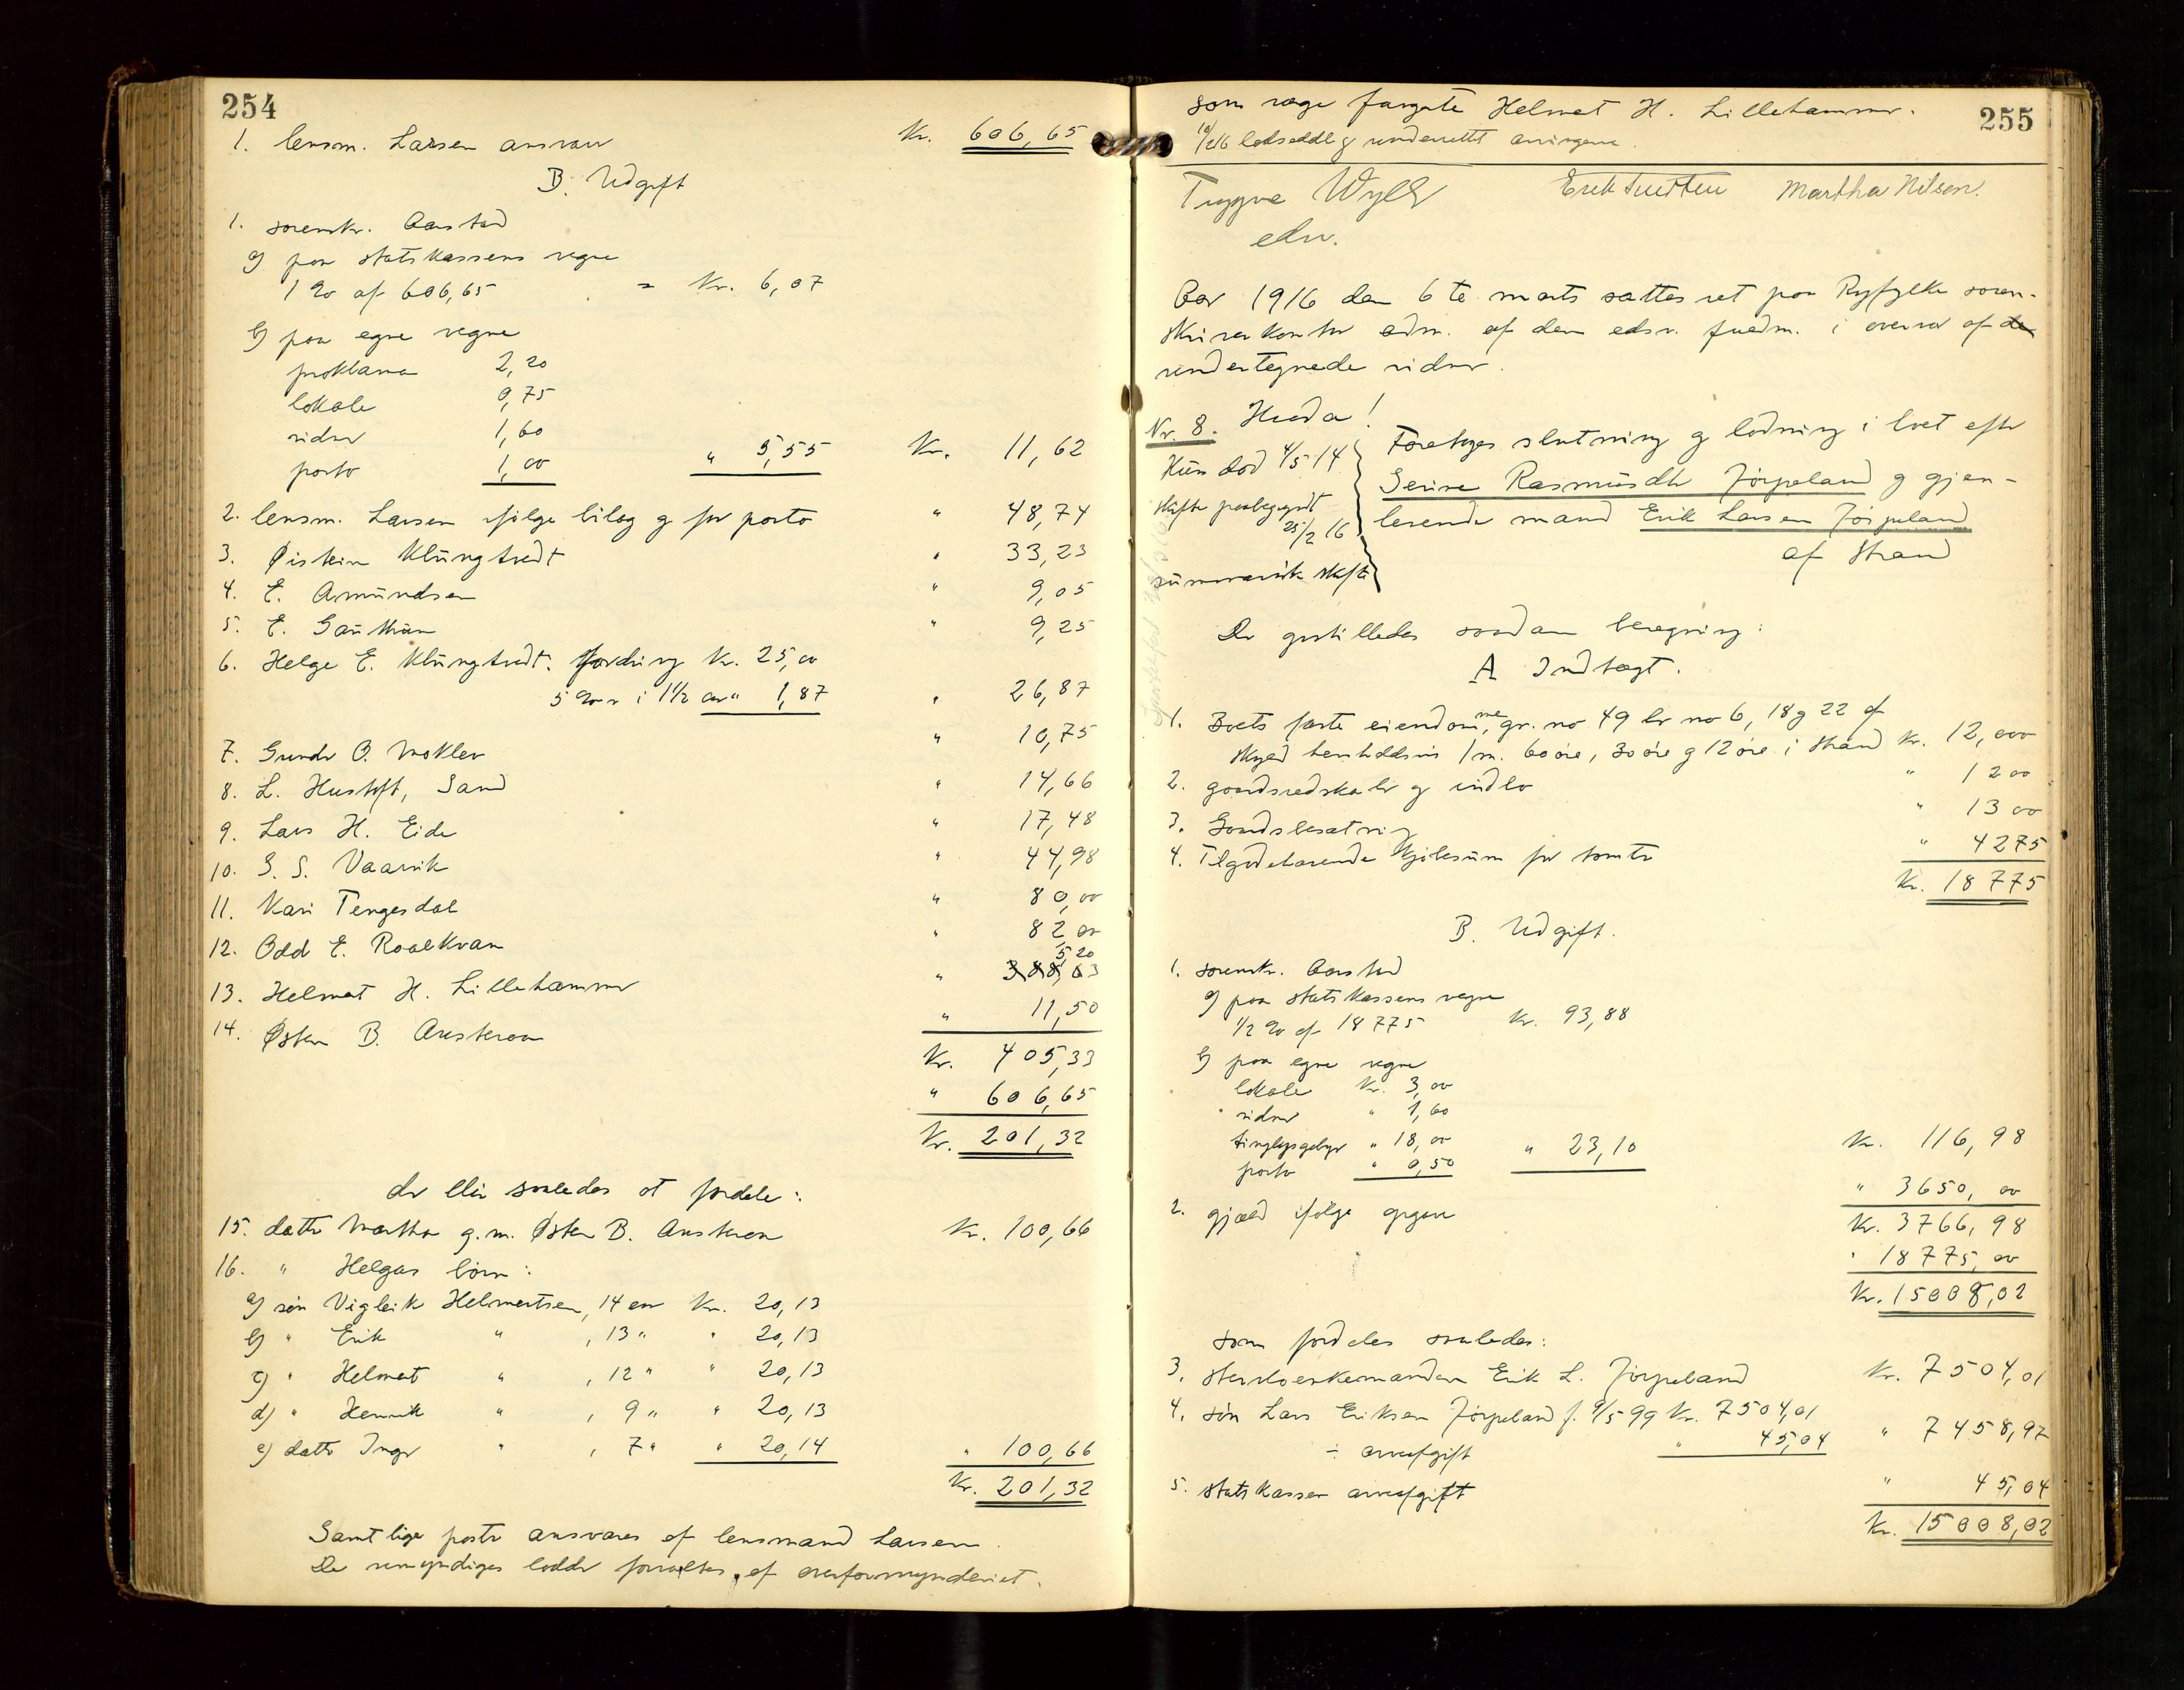 254
1. lensm. Larsen ansvar Kr. 606,65
B. Udgift
1. sorenskr. Aarstad
a) paa statskassens vegne
1 % af 606,65 = Kr. 6,07
b) paa egne vegne
proklama 2,20
lokale 0,75
vidner 1,60
porto 1,00 " 5,55 Kr. 11,62
2. lensm. Larsen ifølge bilag g for porto " 48,74
3. Øistein Klungtvedt " 33,23
4. E. Amundsen " 9,05
5. E. Gauthun " 9,25
6. Helge E. Klungtvedt. fordring Kr. 25,00
5 % r i 1 1/2 aar " 1,87 " 26,87
7. Gunder O. Moklev " 10,75
8. L. Hustoft, Sand " 14,66
9. Lars H. Eide " 17,48
10. S. S. Vaarvik " 44,98
11. Kari Tengesdal " 80,00
12. Odd E. Roalkvam " 82,00
5,20
13. Helmet H. Lillehammer " 388,63
14. Østen B. Austeraa " 11,50
Kr. 405,33
" 606,65
Kr. 201,32
der blir saaledes at fordele:
15. datter Martha g.m. Østen B. Austeraa Kr. 100,66
16. " Helgas børn:
a) søn Vigleik Helmertsen, 14 aar Kr. 20,13
b) " Erik " , 13 " " 20,13
c) " Helmert " , 12 " " 20,13
d) " Henrik " , 9 " " 20,13
e) datter Inger " , 7 " " 20,14 " 100,66
Kr. 201,32
Samtlige poster ansvares af lensmand Larsen.
De umyndiges lodder forvaltes af overformynderiet.
255
som værge fungerte Helmet H. Lillehammer.
10/2 16 lodseddel g underrettet arvingerne.
Trygve Wyller Erik Tuesten Martha Nilsen.
edsv.
Aar 1916 den 6te marts sattes ret paa Ryfylke soren-
skriverkontor adm. af den edsv. fuldm. i overvær af de
undertegnede vidner.
Hvorda!
Nr. 8.
Hun død 4/5 14
skifte paabegyndt
25/2 16
summarisk skifte
Foretoges slutning g lodning i boet efter
Serine Rasmusdtr Jørpeland g gjen-
levende mand Erik Larsen Jørpeland
af Strand
Der opstilledes saadan beregning:
A Indtægt.
1. Boets faste eiendomme, gr. no 49 br no 6, 18 g 22 af
skyld henholdsvis 1 m. 60 øre, 30 øre g 12 øre i Strand Kr. 12,000
2. gaardsredskaber g indbo " 1200
3. Gaardsbesætning " 1300
4. Tilgodehavende kjøbesum for tomter " 4275
Kr. 18775
B. Udgift.
1. sorenskr. Aarstad
a) paa statskassens vegne
1/2 % af 18775 Kr. 93,88
b) paa egne vegne
lokale Kr. 3,00
vidner " 1,60
tinglysgebyr " 18,00
porto " 0,50 " 23,10 Kr. 116,98
2. gjæld ifølge opgave " 3650,00
Kr. 3766,98
" 18775,00
Kr. 15008,02
som fordeles saaledes:
3. sterboenkemanden Erik L. Jørpeland Kr. 7504,01
4. søn Lars Eriksen Jørpeland f. 9/5 99 Kr. 7504,01
÷ arveafgift " 45,04 " 7458,97
5. statskassen arveafgift " 45,04
Kr. 15008,02